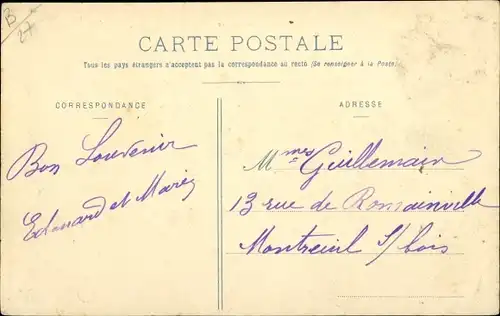 B
27
CARTE POSTALE
Tous les pays étrangers n'acceptent pas la correspondance au recto (Se renseigner à la Poste)
CORRESPONDANCE
Bon Souvenir
Edouard et Marie
ADRESSE
Mmes Guillemain
13 rue de Romainville
Montreuil s/ bois